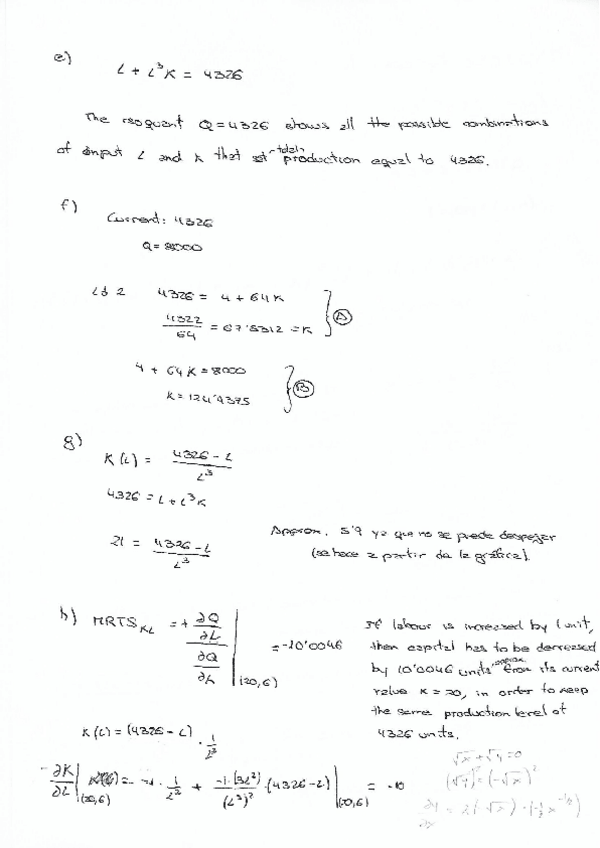 e)
L + L³K = 4326
The isoquant Q=4326 shows all the possible combinations
of input L and K that set total production equal to 4326.
f)
Current: 4326
Q=8000
L=4 4326 = 4 + 64K
4322/64 = 67'5312 = K } A
4 + 64K = 8000
K = 124'9375 } B
g)
K(L) = (4326 - L)/L³
4326 = L + L³K
21 = (4326 - L)/L³ Approx. 5'9 ya que no se puede despejar
(se hace a partir de la gráfica).
h) MRTS_KL = + (∂Q/∂L)/(∂Q/∂K) |(20,6) = -10'0046
If labour is increased by 1 unit,
then capital has to be decreased
by 10'0046 units approx from its current
value K = 20, in order to keep
the same production level at
4326 units.
K(L) = (4326 - L) · 1/L³
-∂K/∂L |(20,6) = -1 · 1/L³ + (-1·(3L²))/(L³)² · (4326 - L) |(20,6) = -10
√x + √y = 0
(√y)² = (-√x)²